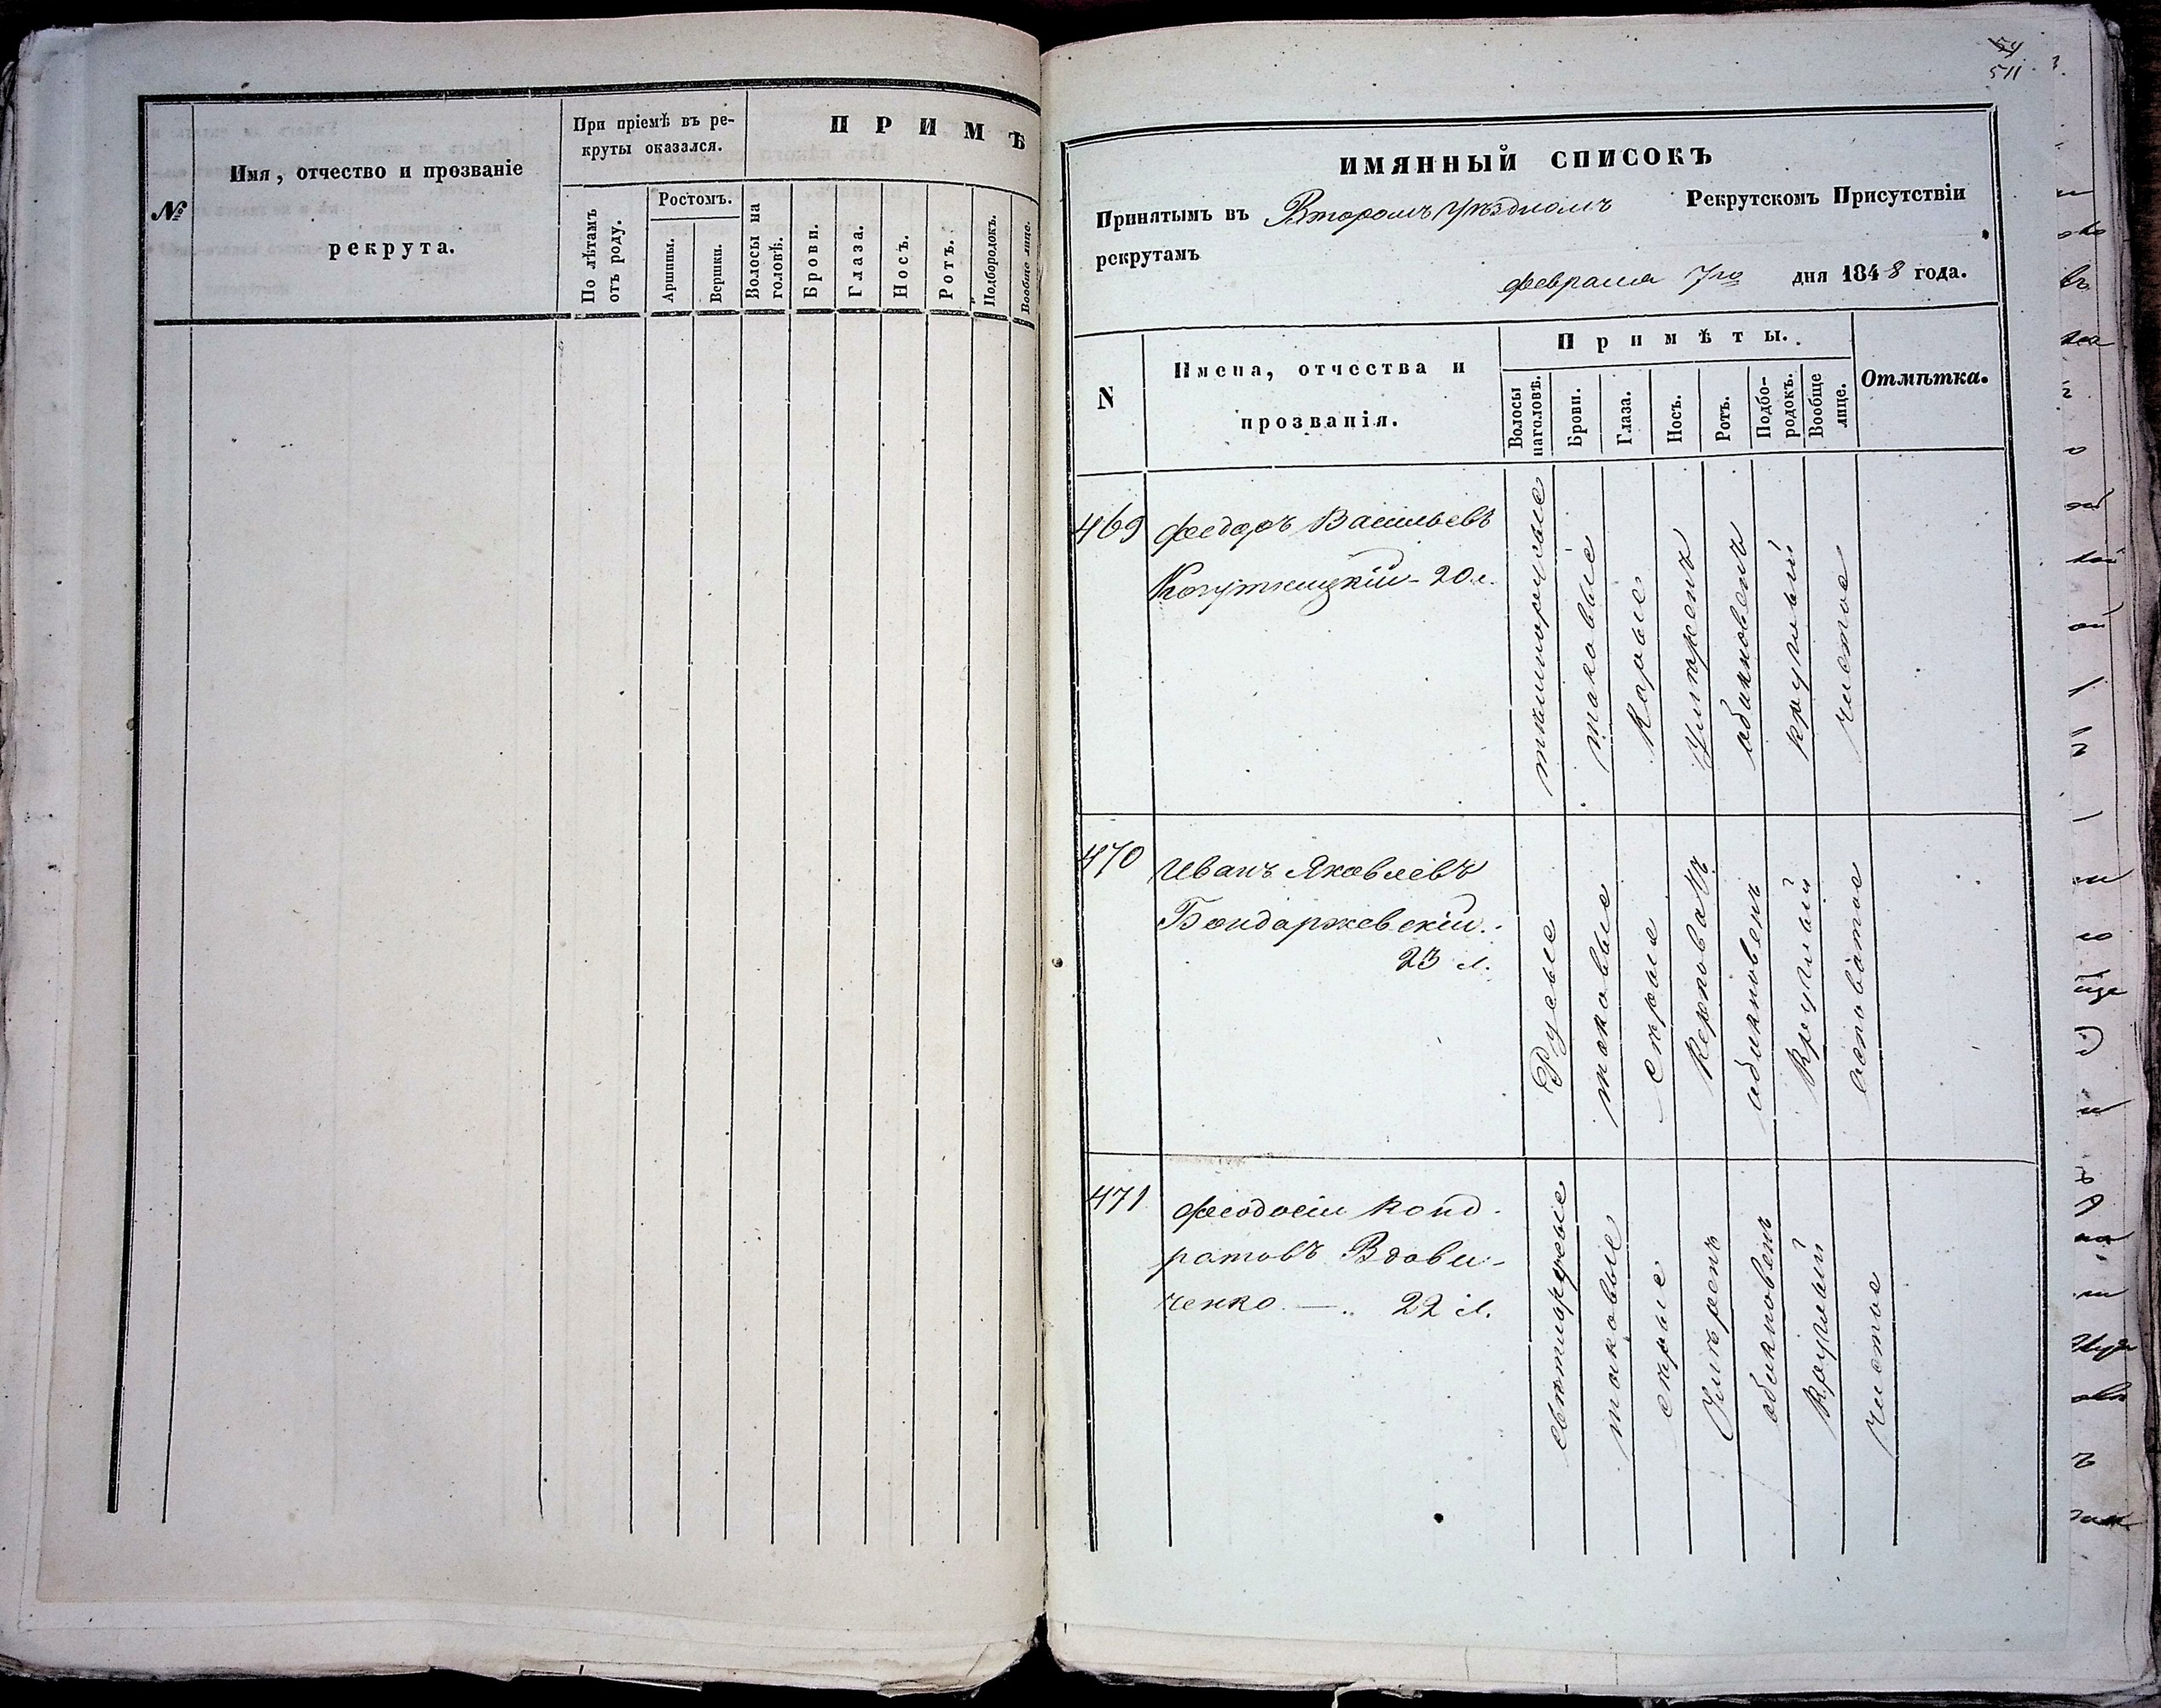 №
Имя, отчество и прозваніе
рекрута.
При пріемѣ въ ре-
круты оказался.
По лѣтамъ
отъ роду.
Ростомъ.
Аршины.
Вершки.
ПРИМѢ
Волосы на
головѣ.
Брови.
Глаза.
Носъ.
Ротъ.
Подбородокъ.
Вообще лице.
54
511
ИМЯННЫЙ СПИСОКЪ
Принятымъ въ Второмъ Уѣздномъ Рекрутскомъ Присутствіи
рекрутамъ
февраля 7го дня 1848 года.
N
Имена, отчества и
прозванія.
Примѣты.
Волосы
наголовѣ.
Брови.
Глаза.
Носъ.
Ротъ.
Подбо-
родокъ.
Вообще
лице.
Отмѣтка.
469
Федоръ Васильевъ
20 л.
темнорусые
таковые
Карые
Умѣренъ
обыкновенъ
круглый
чистое
470
Иванъ Яковлевъ
Бондаржевскій.
23 л.
Русые
таковые
сѣрые
Керповатъ
обыкновенъ
Круглый
осповатое
471
Феодосій Конд-
ратовъ Вдови-
ченко — 22 л.
свѣтлорусые
таковые
сѣрые
Умѣренъ
обыкновенъ
Круглый
чистое